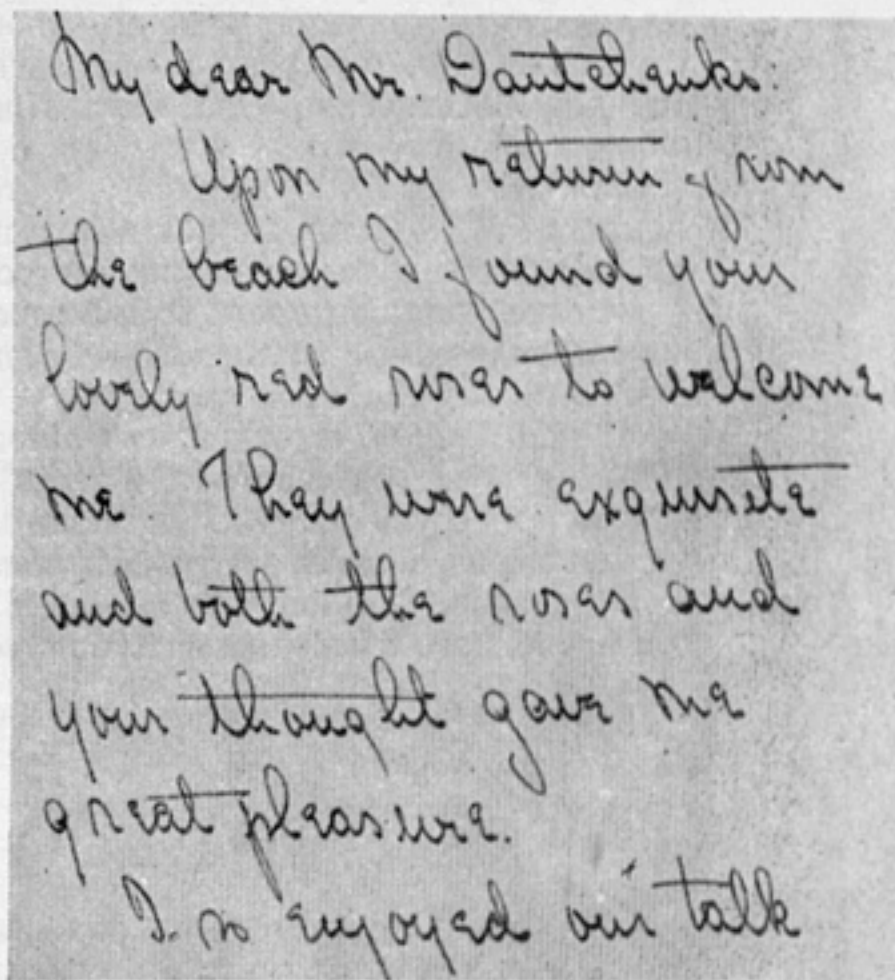 My dear Mr. Dautchenko:
Upon my return from
the beach I found your
lovely red roses to welcome
me. They were exquisite
and both the roses and
your thought gave me
great pleasure.
I so enjoyed our talk